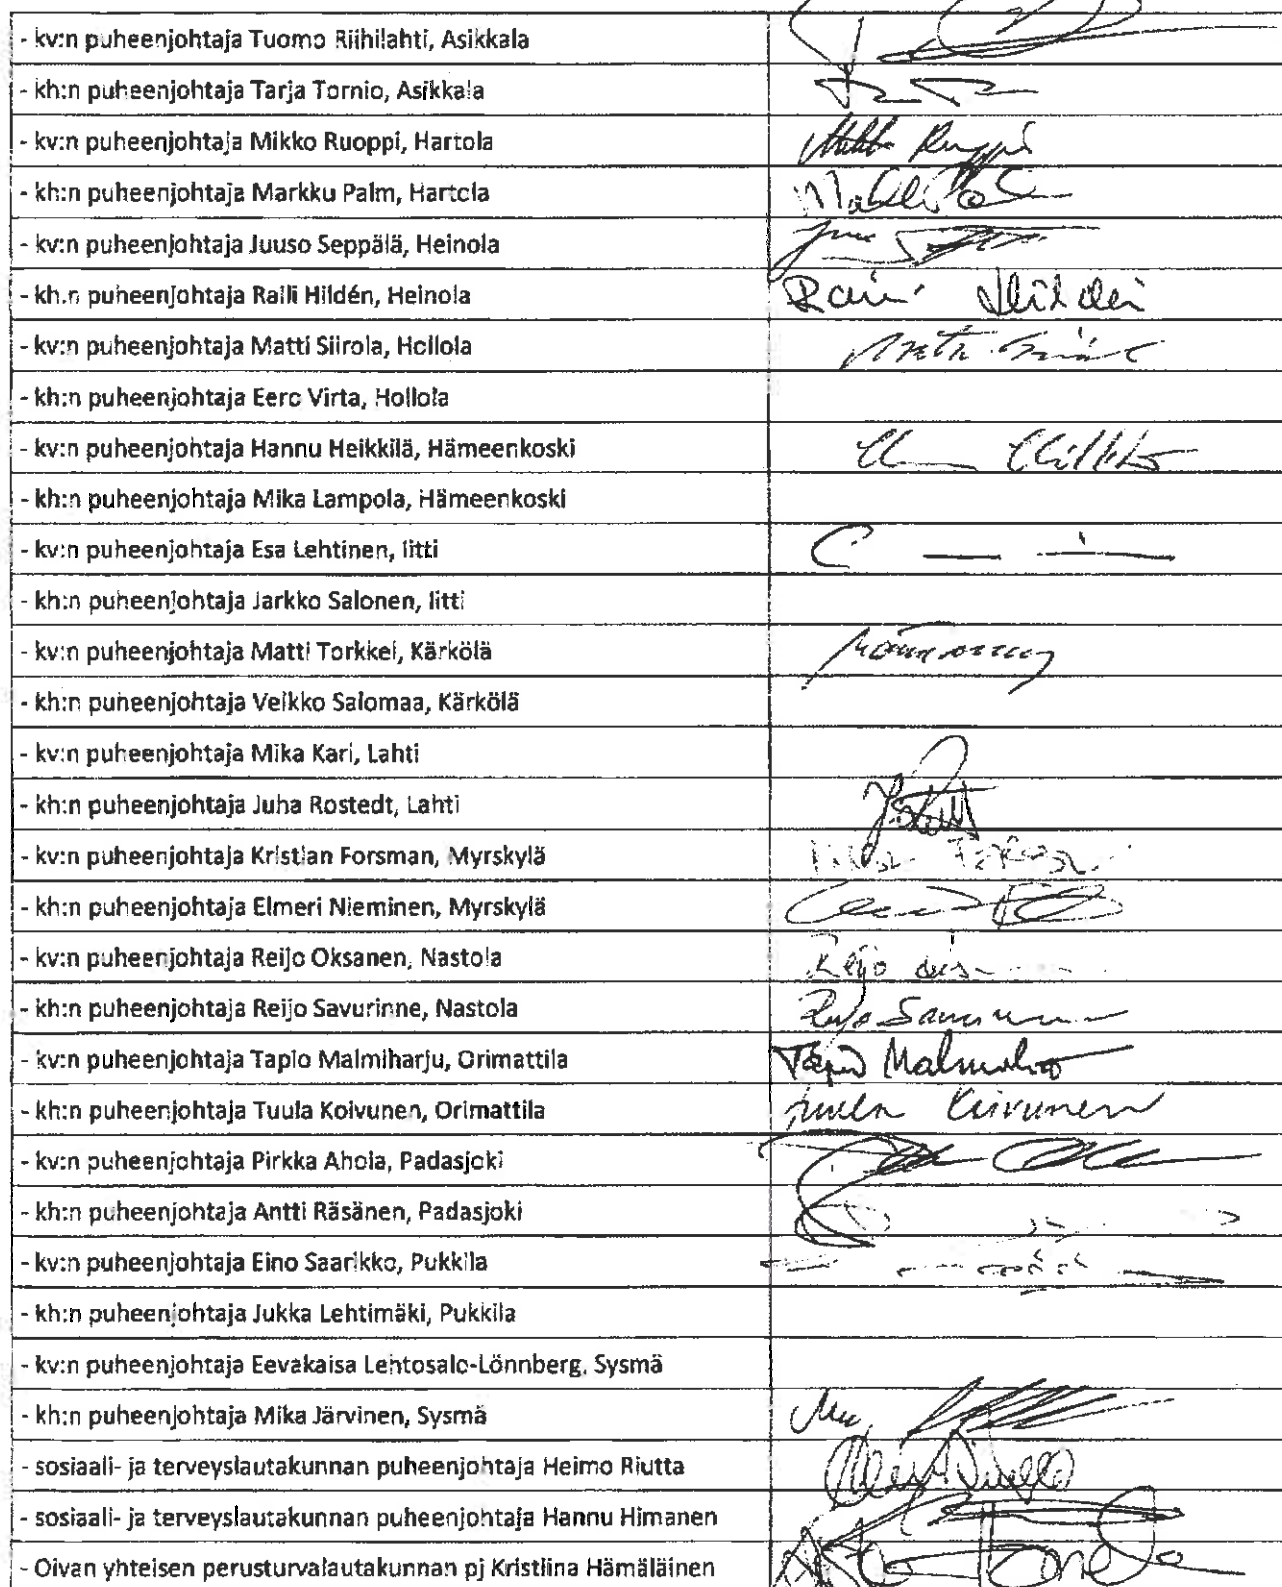 - kv:n puheenjohtaja Tuomo Riihilahti, Asikkala
- kh:n puheenjohtaja Tarja Tornio, Asikkala
- kv:n puheenjohtaja Mikko Ruoppi, Hartola Mikko Ruoppi
- kh:n puheenjohtaja Markku Palm, Hartola
- kv:n puheenjohtaja Juuso Seppälä, Heinola
- kh:n puheenjohtaja Raili Hildén, Heinola Raili Hildén
- kv:n puheenjohtaja Matti Siirola, Hollola
- kh:n puheenjohtaja Eero Virta, Hollola
- kv:n puheenjohtaja Hannu Heikkilä, Hämeenkoski
- kh:n puheenjohtaja Mika Lampola, Hämeenkoski
- kv:n puheenjohtaja Esa Lehtinen, Iitti
- kh:n puheenjohtaja Jarkko Salonen, Iitti
- kv:n puheenjohtaja Matti Torkkel, Kärkölä
- kh:n puheenjohtaja Veikko Salomaa, Kärkölä
- kv:n puheenjohtaja Mika Kari, Lahti
- kh:n puheenjohtaja Juha Rostedt, Lahti
- kv:n puheenjohtaja Kristian Forsman, Myrskylä
- kh:n puheenjohtaja Elmeri Nieminen, Myrskylä
- kv:n puheenjohtaja Reijo Oksanen, Nastola Reijo
- kh:n puheenjohtaja Reijo Savurinne, Nastola Reijo Savurinne
- kv:n puheenjohtaja Tapio Malmiharju, Orimattila Tapio Malmiharju
- kh:n puheenjohtaja Tuula Koivunen, Orimattila Tuula Koivunen
- kv:n puheenjohtaja Pirkka Ahola, Padasjoki
- kh:n puheenjohtaja Antti Räsänen, Padasjoki
- kv:n puheenjohtaja Eino Saarikko, Pukkila
- kh:n puheenjohtaja Jukka Lehtimäki, Pukkila
- kv:n puheenjohtaja Eevakaisa Lehtosalo-Lönnberg, Sysmä
- kh:n puheenjohtaja Mika Järvinen, Sysmä
- sosiaali- ja terveyslautakunnan puheenjohtaja Heimo Riutta
- sosiaali- ja terveyslautakunnan puheenjohtaja Hannu Himanen
- Oivan yhteisen perusturvalautakunnan pj Kristiina Hämäläinen